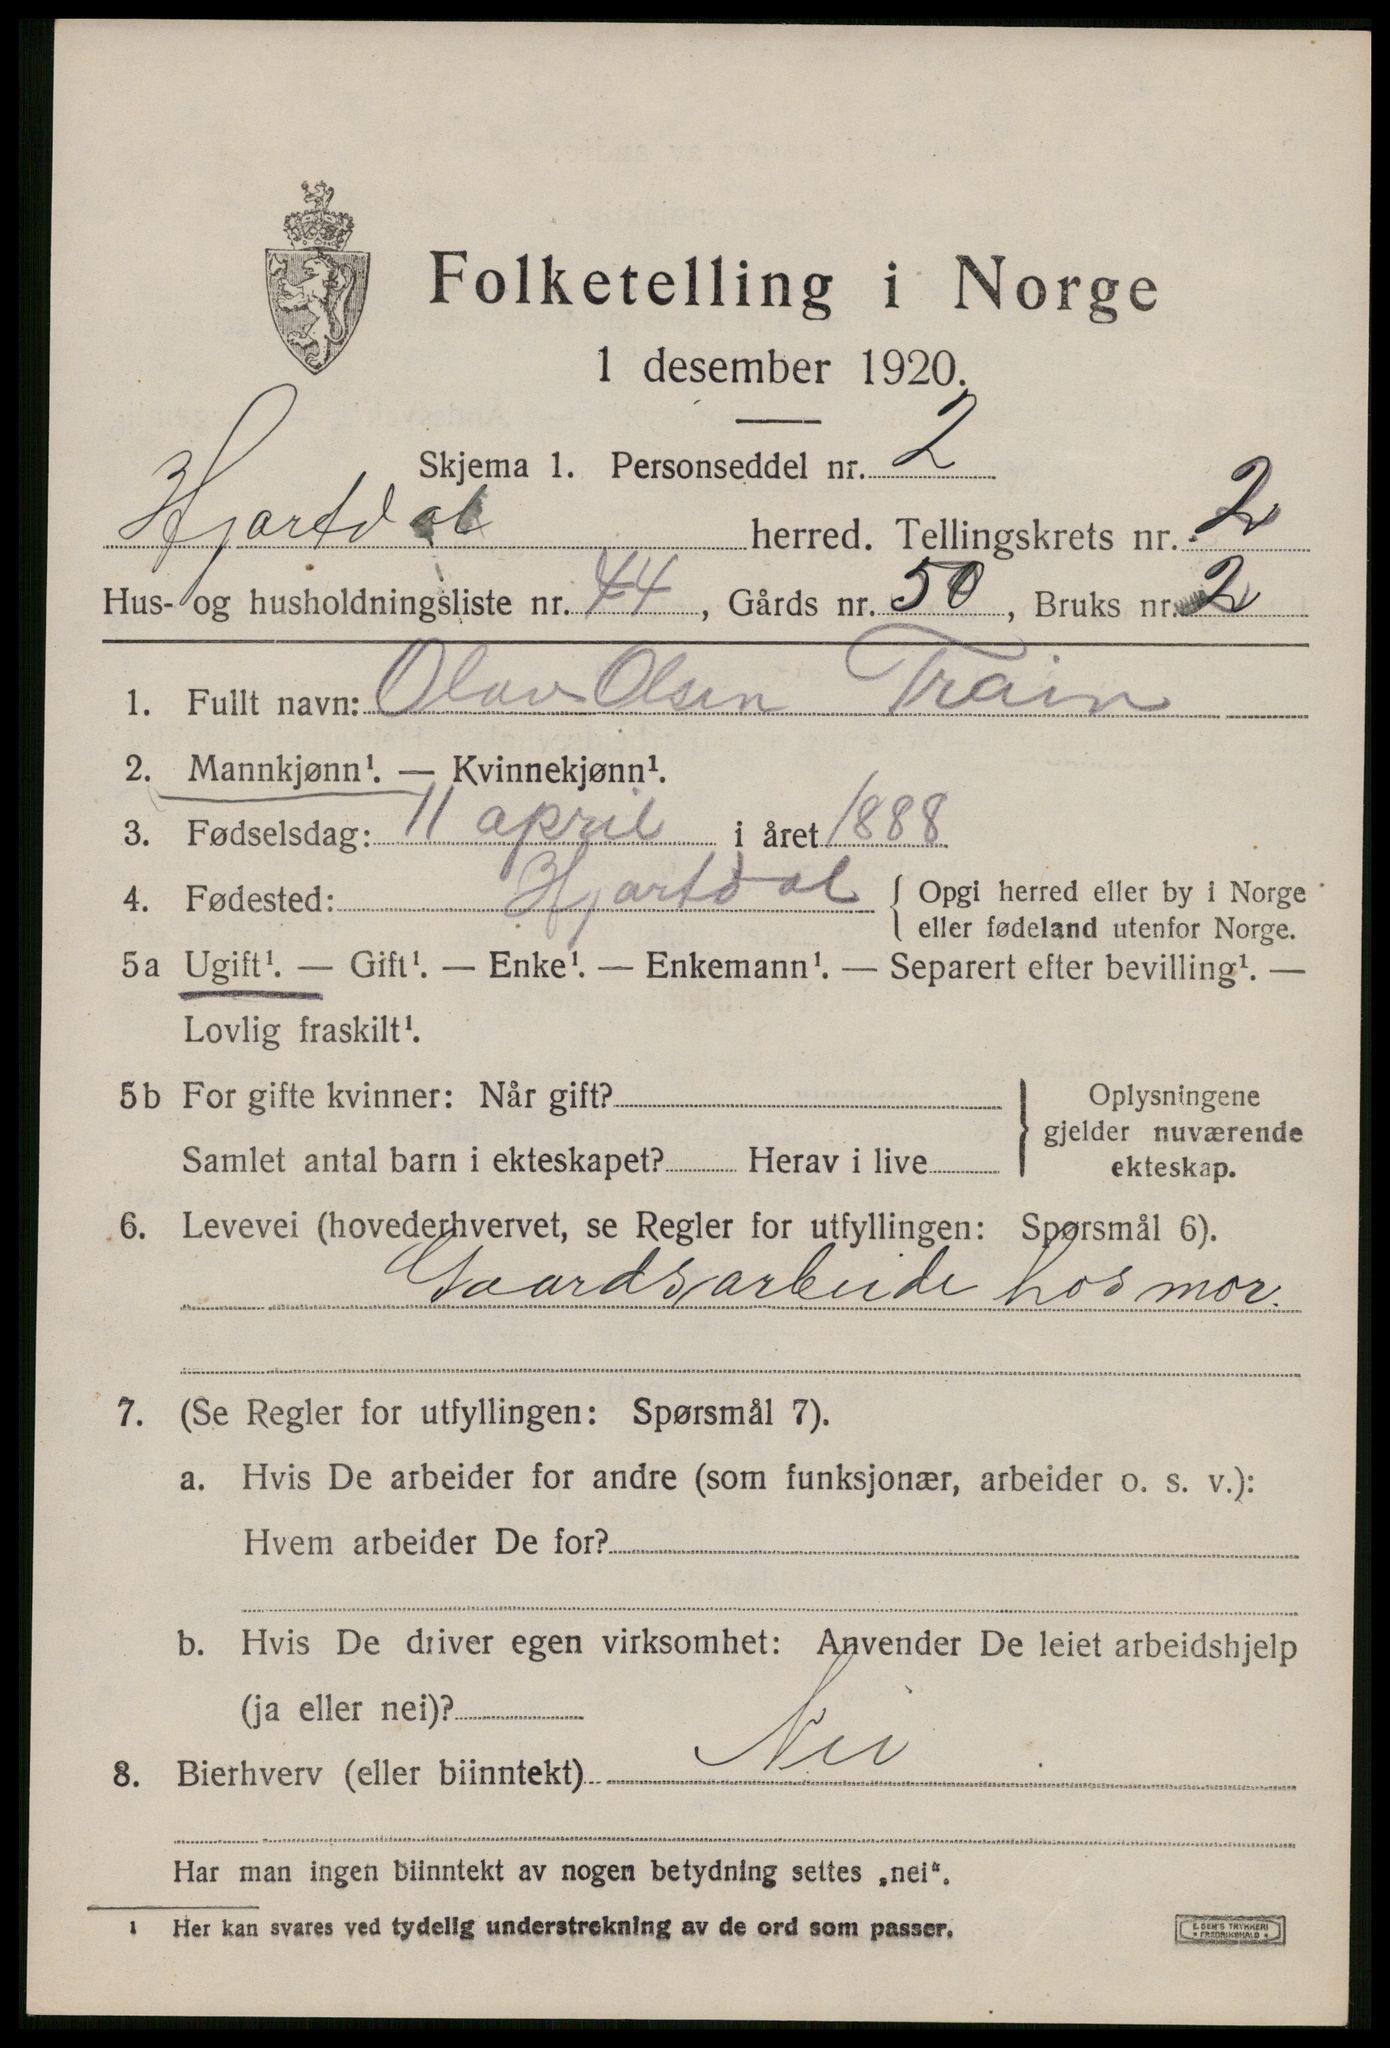 Folketelling i Norge
1 desember 1920.
Skjema 1. Personseddel nr. 2
Hjartdal herred. Tellingskrets nr. 2
Hus- og husholdningsliste nr. 44, Gårds nr. 50, Bruks nr. 2
1. Fullt navn: Olav Olsen Träin
2. Mannkjønn¹. — Kvinnekjønn¹.
3. Fødselsdag: 11 april i året 1888
4. Fødested: Hjartdal { Opgi herred eller by i Norge
eller fødeland utenfor Norge.
5a Ugift¹. — Gift¹. — Enke¹. — Enkemann¹. — Separert efter bevilling¹. —
Lovlig fraskilt¹.
5b For gifte kvinner: Når gift? } Oplysningene
gjelder nuværende
Samlet antal barn i ekteskapet? Herav i live ekteskap.
6. Levevei (hovederhvervet, se Regler for utfyllingen: Spørsmål 6).
Gaardsarbeide hos mor.
7. (Se Regler for utfyllingen: Spørsmål 7).
a. Hvis De arbeider for andre (som funksjonær, arbeider o. s. v.):
Hvem arbeider De for?
b. Hvis De driver egen virksomhet: Anvender De leiet arbeidshjelp
(ja eller nei)?
8. Bierhverv (eller biinntekt) Nei
Har man ingen biinntekt av nogen betydning settes „nei“.
¹ Her kan svares ved tydelig understrekning av de ord som passer.
E. SEM'S TRYKKERI
* FREDRIKSHALD *